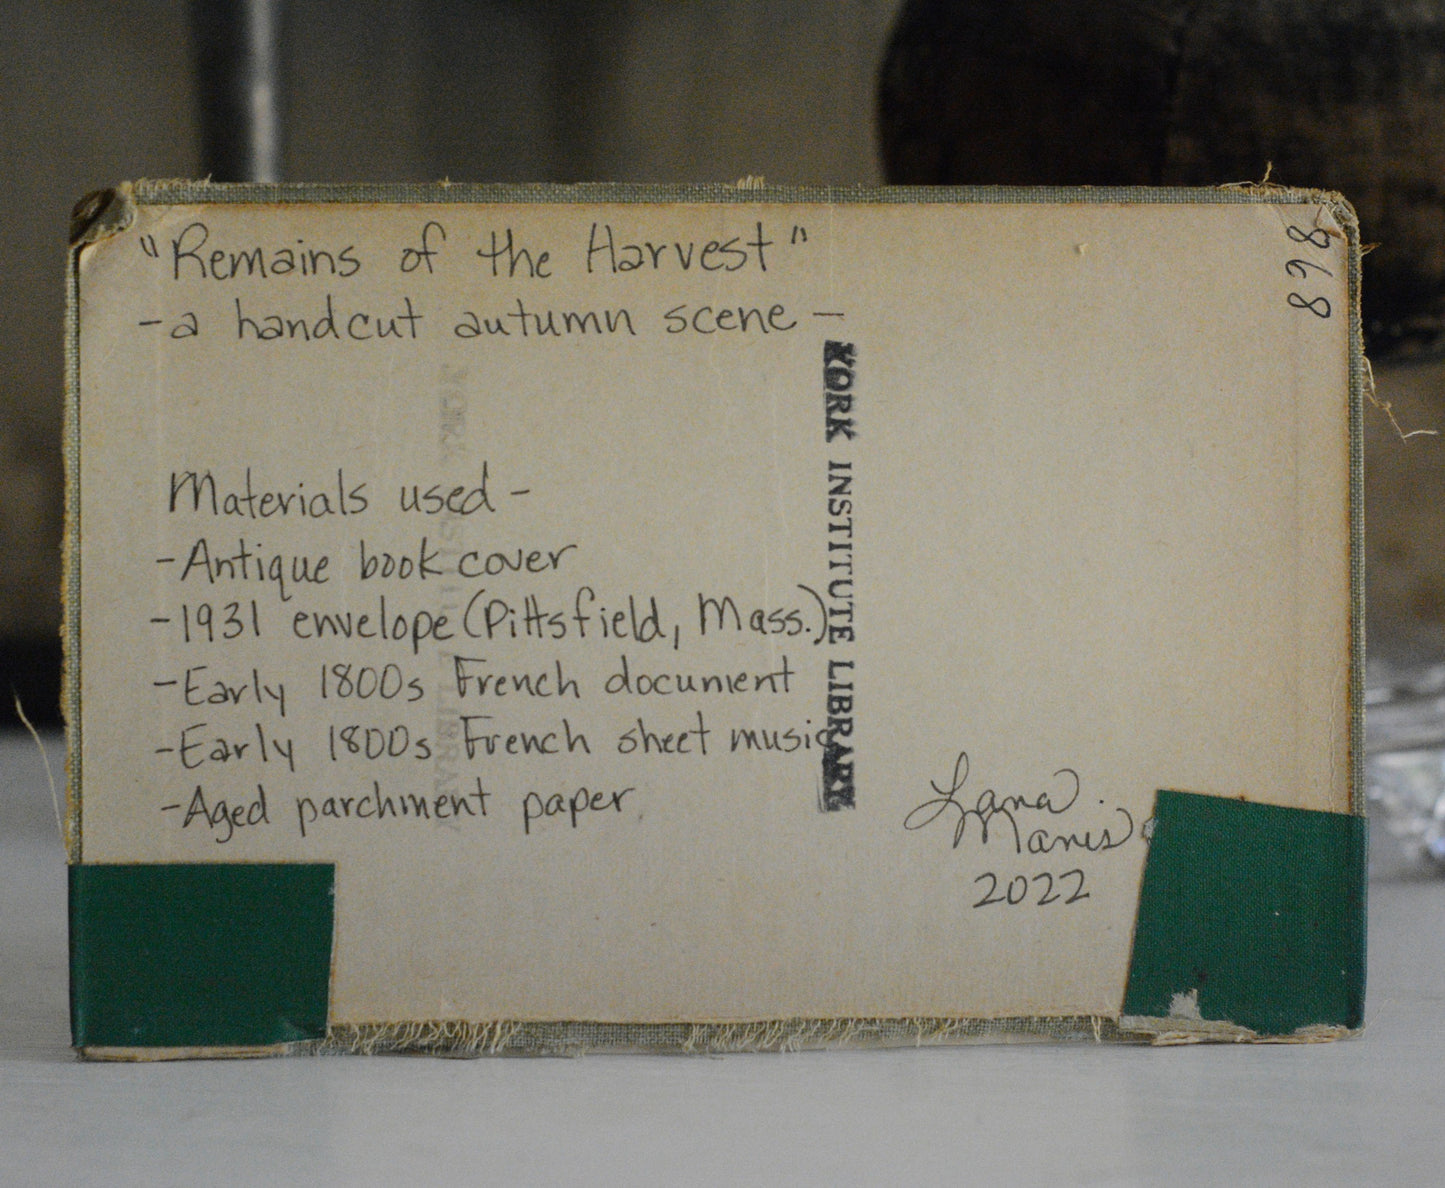 "Remains of the Harvest"
-a handcut autumn scene-
Materials used-
-Antique book cover
-1931 envelope (Pittsfield, Mass.)
-Early 1800s French document
-Early 1800s French sheet music
-Aged parchment paper
YORK INSTITUTE LIBRARY
YORK INSTITUTE LIBRARY
898
Lana
Manis
2022